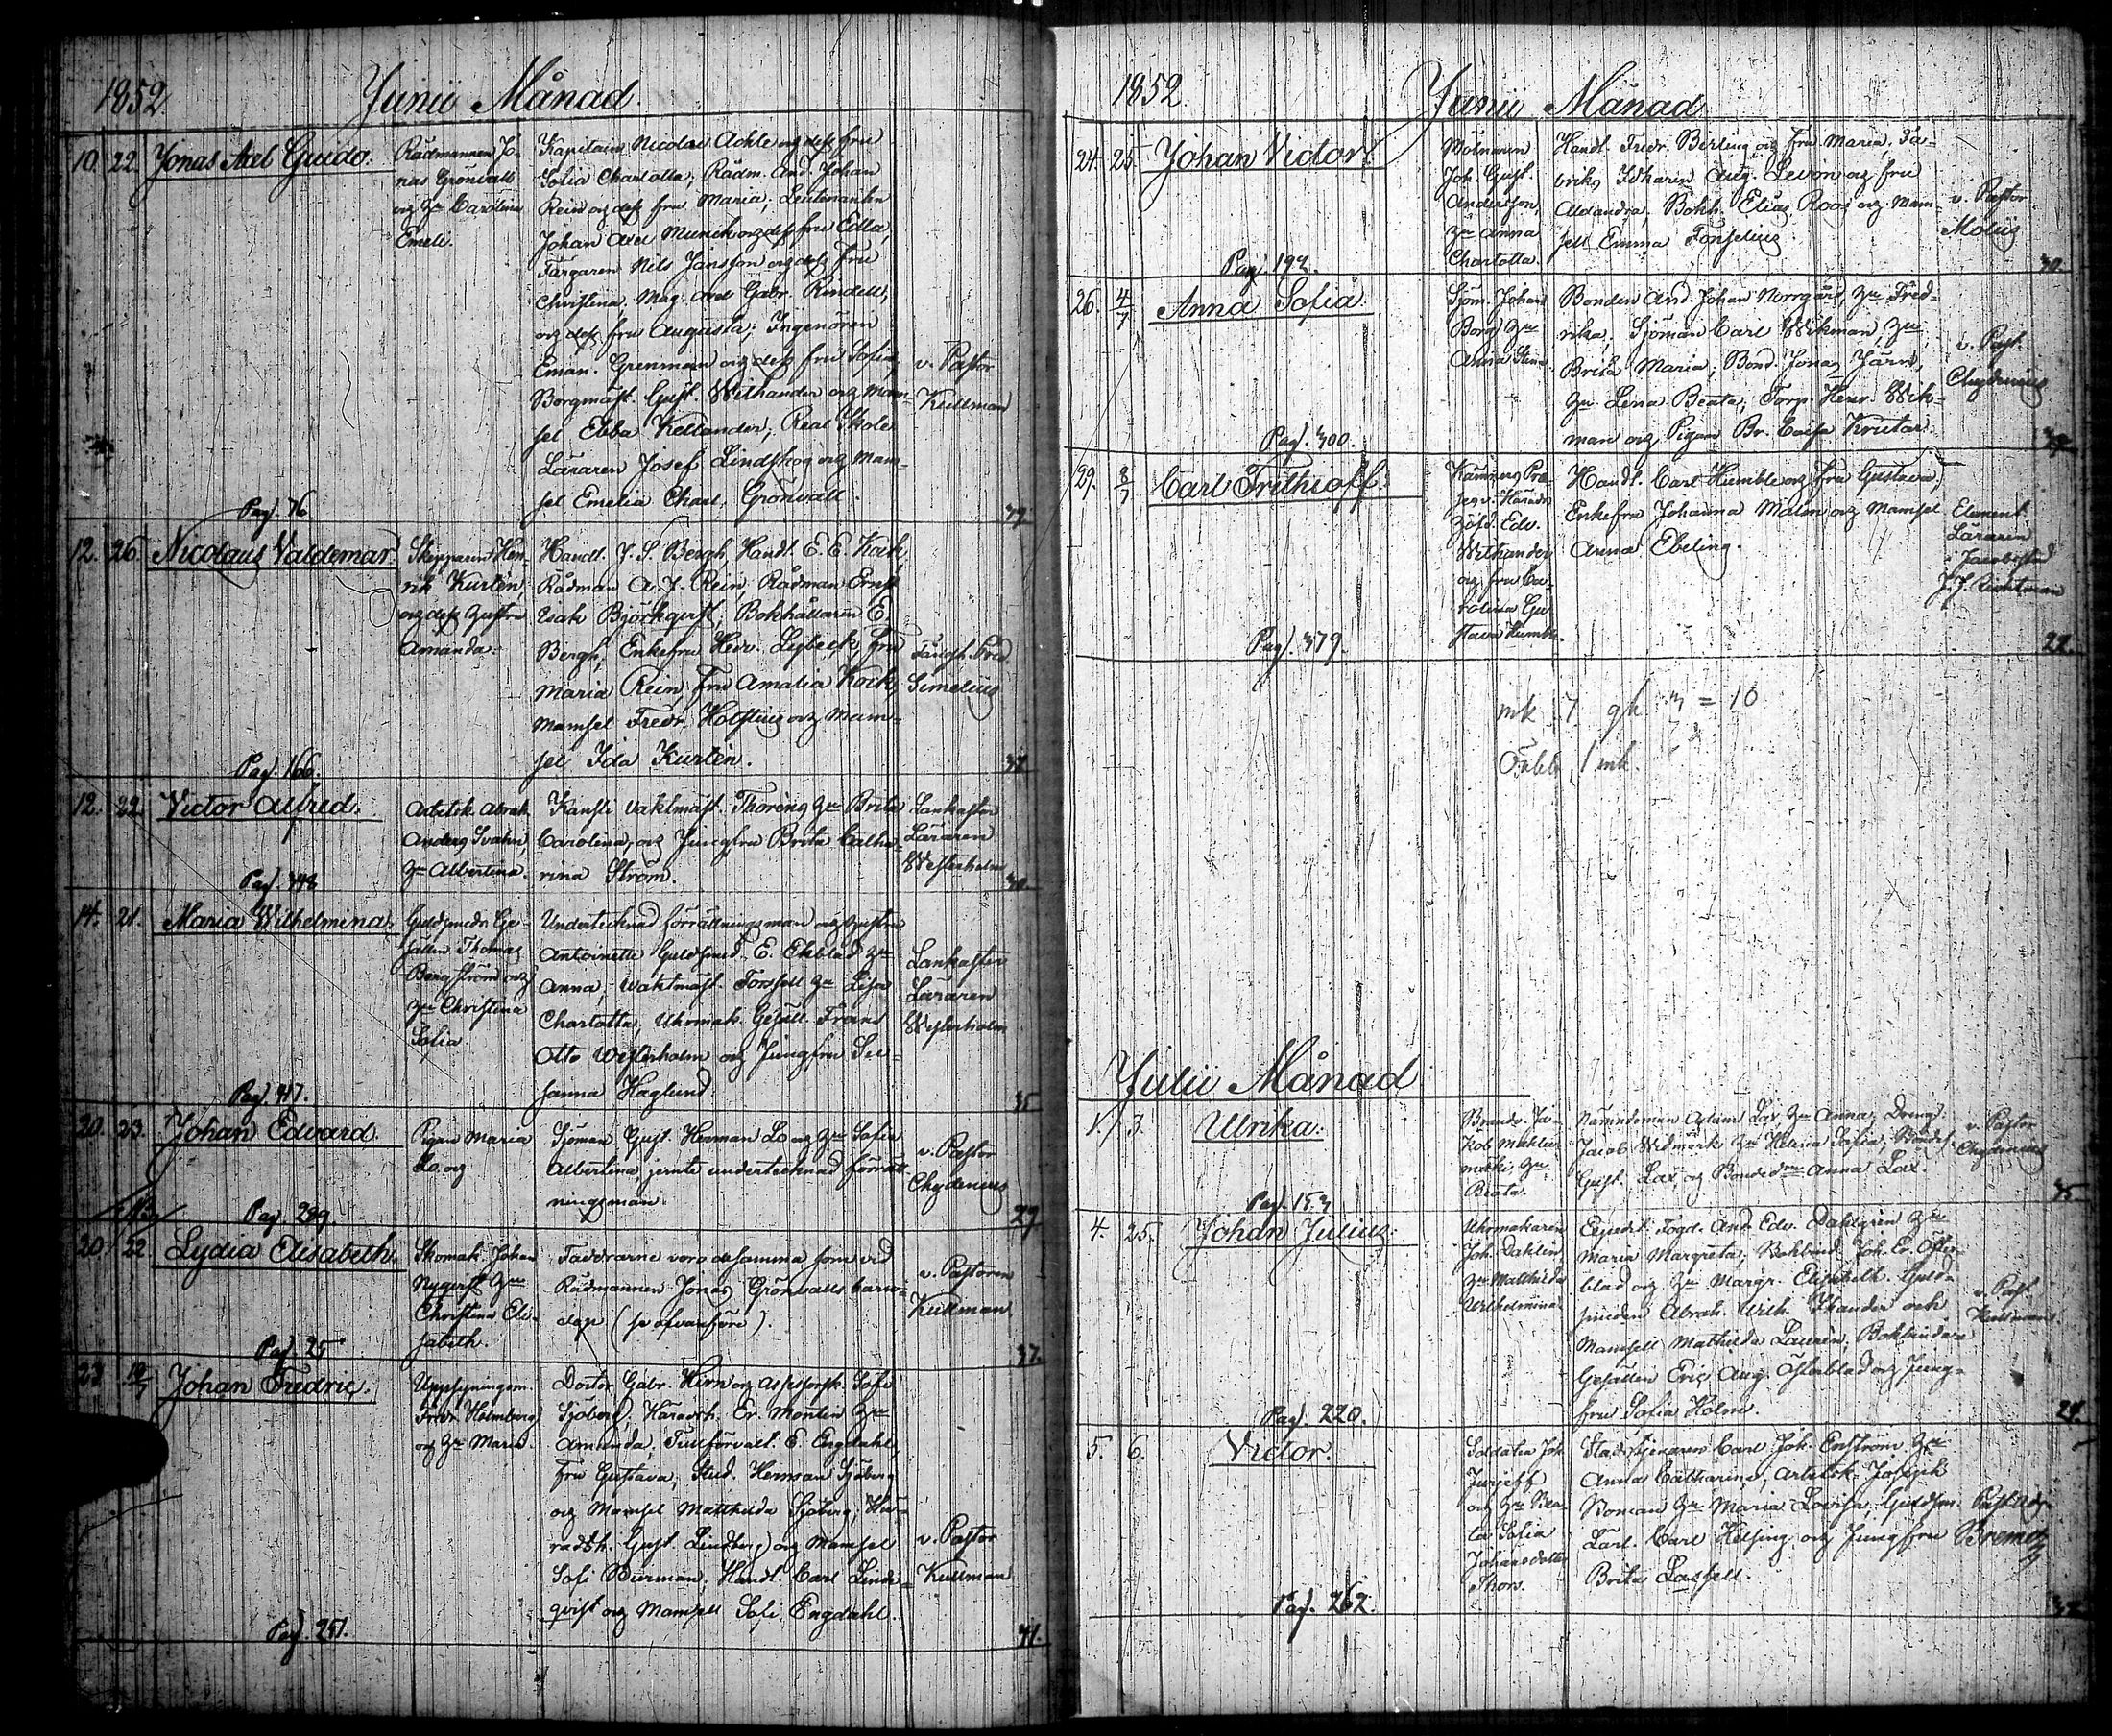 1852. Junii Månad.
10. 22. Jonas Axel Guido.
Rådmannen Jo-
nas Grönvall
och Hu Carolina
Emeli.
Kapitain Nicolai Achte och dess fru
Sofia Charlotta; Rådm. And. Johan
Rein och dess fru Maria; Leutenanten
Johan Axel Munck och dess fru Edla,
Färgaren Nils Jansson och dess fru
Christina, Mag. Axel Gabr. Rindell,
och dess fru Augusta; Ingenören
Eman. Grenman och dess fru Sofia,
Borgmäst. Gust. Withander och Mam-
sel Ebba Kellander, Real Skole
Läraren Josef Lindskog och Mam-
sel Emelia Charl. Grönvall.
v. Pastor
Kullman
Pag. 76
12. 26. Nicolaus Valdemar.
Skepparen Hen-
rik Kurtén,
och dess hustru
Amanda.
Handl. J. S. Bergh, Handl. E. E. Kock,
Rådman A. J. Rein, Rådman Ernst
Isak Björkqvist, Bokhållaren E.
Bergh, Enkefru Hedv. Lybeck, fru
Maria Rein, fru Amalia Kock,
Mamsel Fredr. Holstius och Mam-
sel Ida Kurtén.
Simelius
Pag. 166.
12. 22. Victor Alfred.
Arbetsk. Abrah.
Anders Svahn,
Hu Albertina.
Kansli Vaktmäst. Thoréns Hu Brita
Carolina, och Jungfru Brita Catha-
rina Ström.
Lankaster
Läraren
Westerholm
14. 21. Maria Wilhelmina.
Guldsmeds Ge-
sällen Thomas
Bergström och
Hu Christina
Sofia.
Undertecknad förrättningsman och hustru
Antoinette Guldsmed. E. Ekblad Hu
Anna, Vaktmäst. Forssell Hu Lisa
Charlotta, Uhrmak. Gesäll. Frans
Otto Westerholm och Jungfru Su-
sanna Haglund
Lankaster
Läraren
Westerholm
Pag. 417.
35
20. 23. Johan Edvard.
Pigan Maria
Lo och
Sjöman Gust. Herman Lo och Hu Sofia
Albertina, jemte undertecknad förrätt-
ningsman.
v. Pastor
Chydenius
Pag. 289.
29
20. 22 Lydia Elisabeth.
Skomak. Johan
Nyqvist Hu
Christina Eli-
sabeth.
Faddrarne voro desamma som vid
Rådmannen Jonas Grönvalls barn-
dop (se ofvanföre).
v. Pastoren
Kullman
Pag. 25
37.
23 Johan Fredric.
Uppsyningsm.
Fredr. Holmberg
och Hu Maria.
Doctor Gabr. Hirn och Assessorsk. Sofi
Sjöberg, Häradsh. Er. Montin Hu
Amanda, Tullförvalt. E. Engdahl,
fru Gustava, Stud. Herman Sjöberg
och Mamsel Matthilda Sjöberg, Hä-
radsh. Gust. Lindberg och Mamsel
Sofi Burman, Handl. Carl Linde-
qvist och Mamsell Sofi Engdahl.
v. Pastor
Kullman
Pag. 251.
41.
1852. Junii Månad
24. 25. Johan Victor.
Mölnaren
Joh. Gust.
Andersson,
Hu Anna
Charlotta.
Handl. Fredr. Berling och fru Maria, Fa-
briks Idkaren Aug. Levon och fru
Alexandra, Bokh. Elias Roos och Mam-
sell Emma Tonselius.
v. Pastor
Molüs
Pag. 192.
30.
26. 4/7 Anna Sofia.
Sjöm. Johan
Borg Hu
Anna Stina
Bonden And. Johan Norrgård, Hu Fred-
rika, Sjöman Carl Wikman, Hu
Brita Maria; Bond. Jonas Järn,
Hu Lena Beata; Torp. Henr. Wik-
man och Pigan Br. Caisa Krutar.
v. Past.
Chydenius
Pag. 300.
29. 8/7 Carl Frithioff.
Häfd. Edv.
Withander
och fru Ca-
rolina Gu-
stava Humble.
Handl. Carl Humble och fru Gustava,
Enkefru Johanna Malm och Mamsel
Anna Ebeling.
Element.
Läraren
i Jacobstad
Pag. 379.
22.
mk 7 gk 3 = 10
1 mk.
Julii Månad
1. 3. Ulrika.
Beata.
Nämndeman Adam Lax Hu Anna, Dreng.
Jacob Widmark Hu Helena Sofia, Bondes.
Gust. Lax, och Bonded. Anna Lax.
v. Pastor
Chydenius
Pag. 153
35
4. 25. Johan Julius.
Uhrmakaren
Joh. Dahlin
Hu Matthilda
Wilhelmina
Expedit. Fogd. And. Edv. Dahlgren Hu
Maria Margreta, Bokbind. Joh. Er. Öster-
blad och Hu Margr. Elisabeth. Guld-
smeden Abrah. Wilh. Ekander och
Mamsell Mathilda Laurén, Bokbindare
Gesällen Eric Aug. Österblad och Jung-
fru Sofia Holm.
v. Past.
Kullman.
Pag. 220.
5. 6. Victor.
Soldaten Joh.
Jurjeff
och Hu
Sofia
Johansdotter
Thors.
Stadstjenaren Carl Joh. Enström Hu
Anna Catharina, Arbetsk. Joseph
Boman Hu Maria Lovisa, Guldsm.
Lärl. Carl Helsing och Jungfru
Brita Lassell.
Past. Adj.
Bremer
Pag. 262.